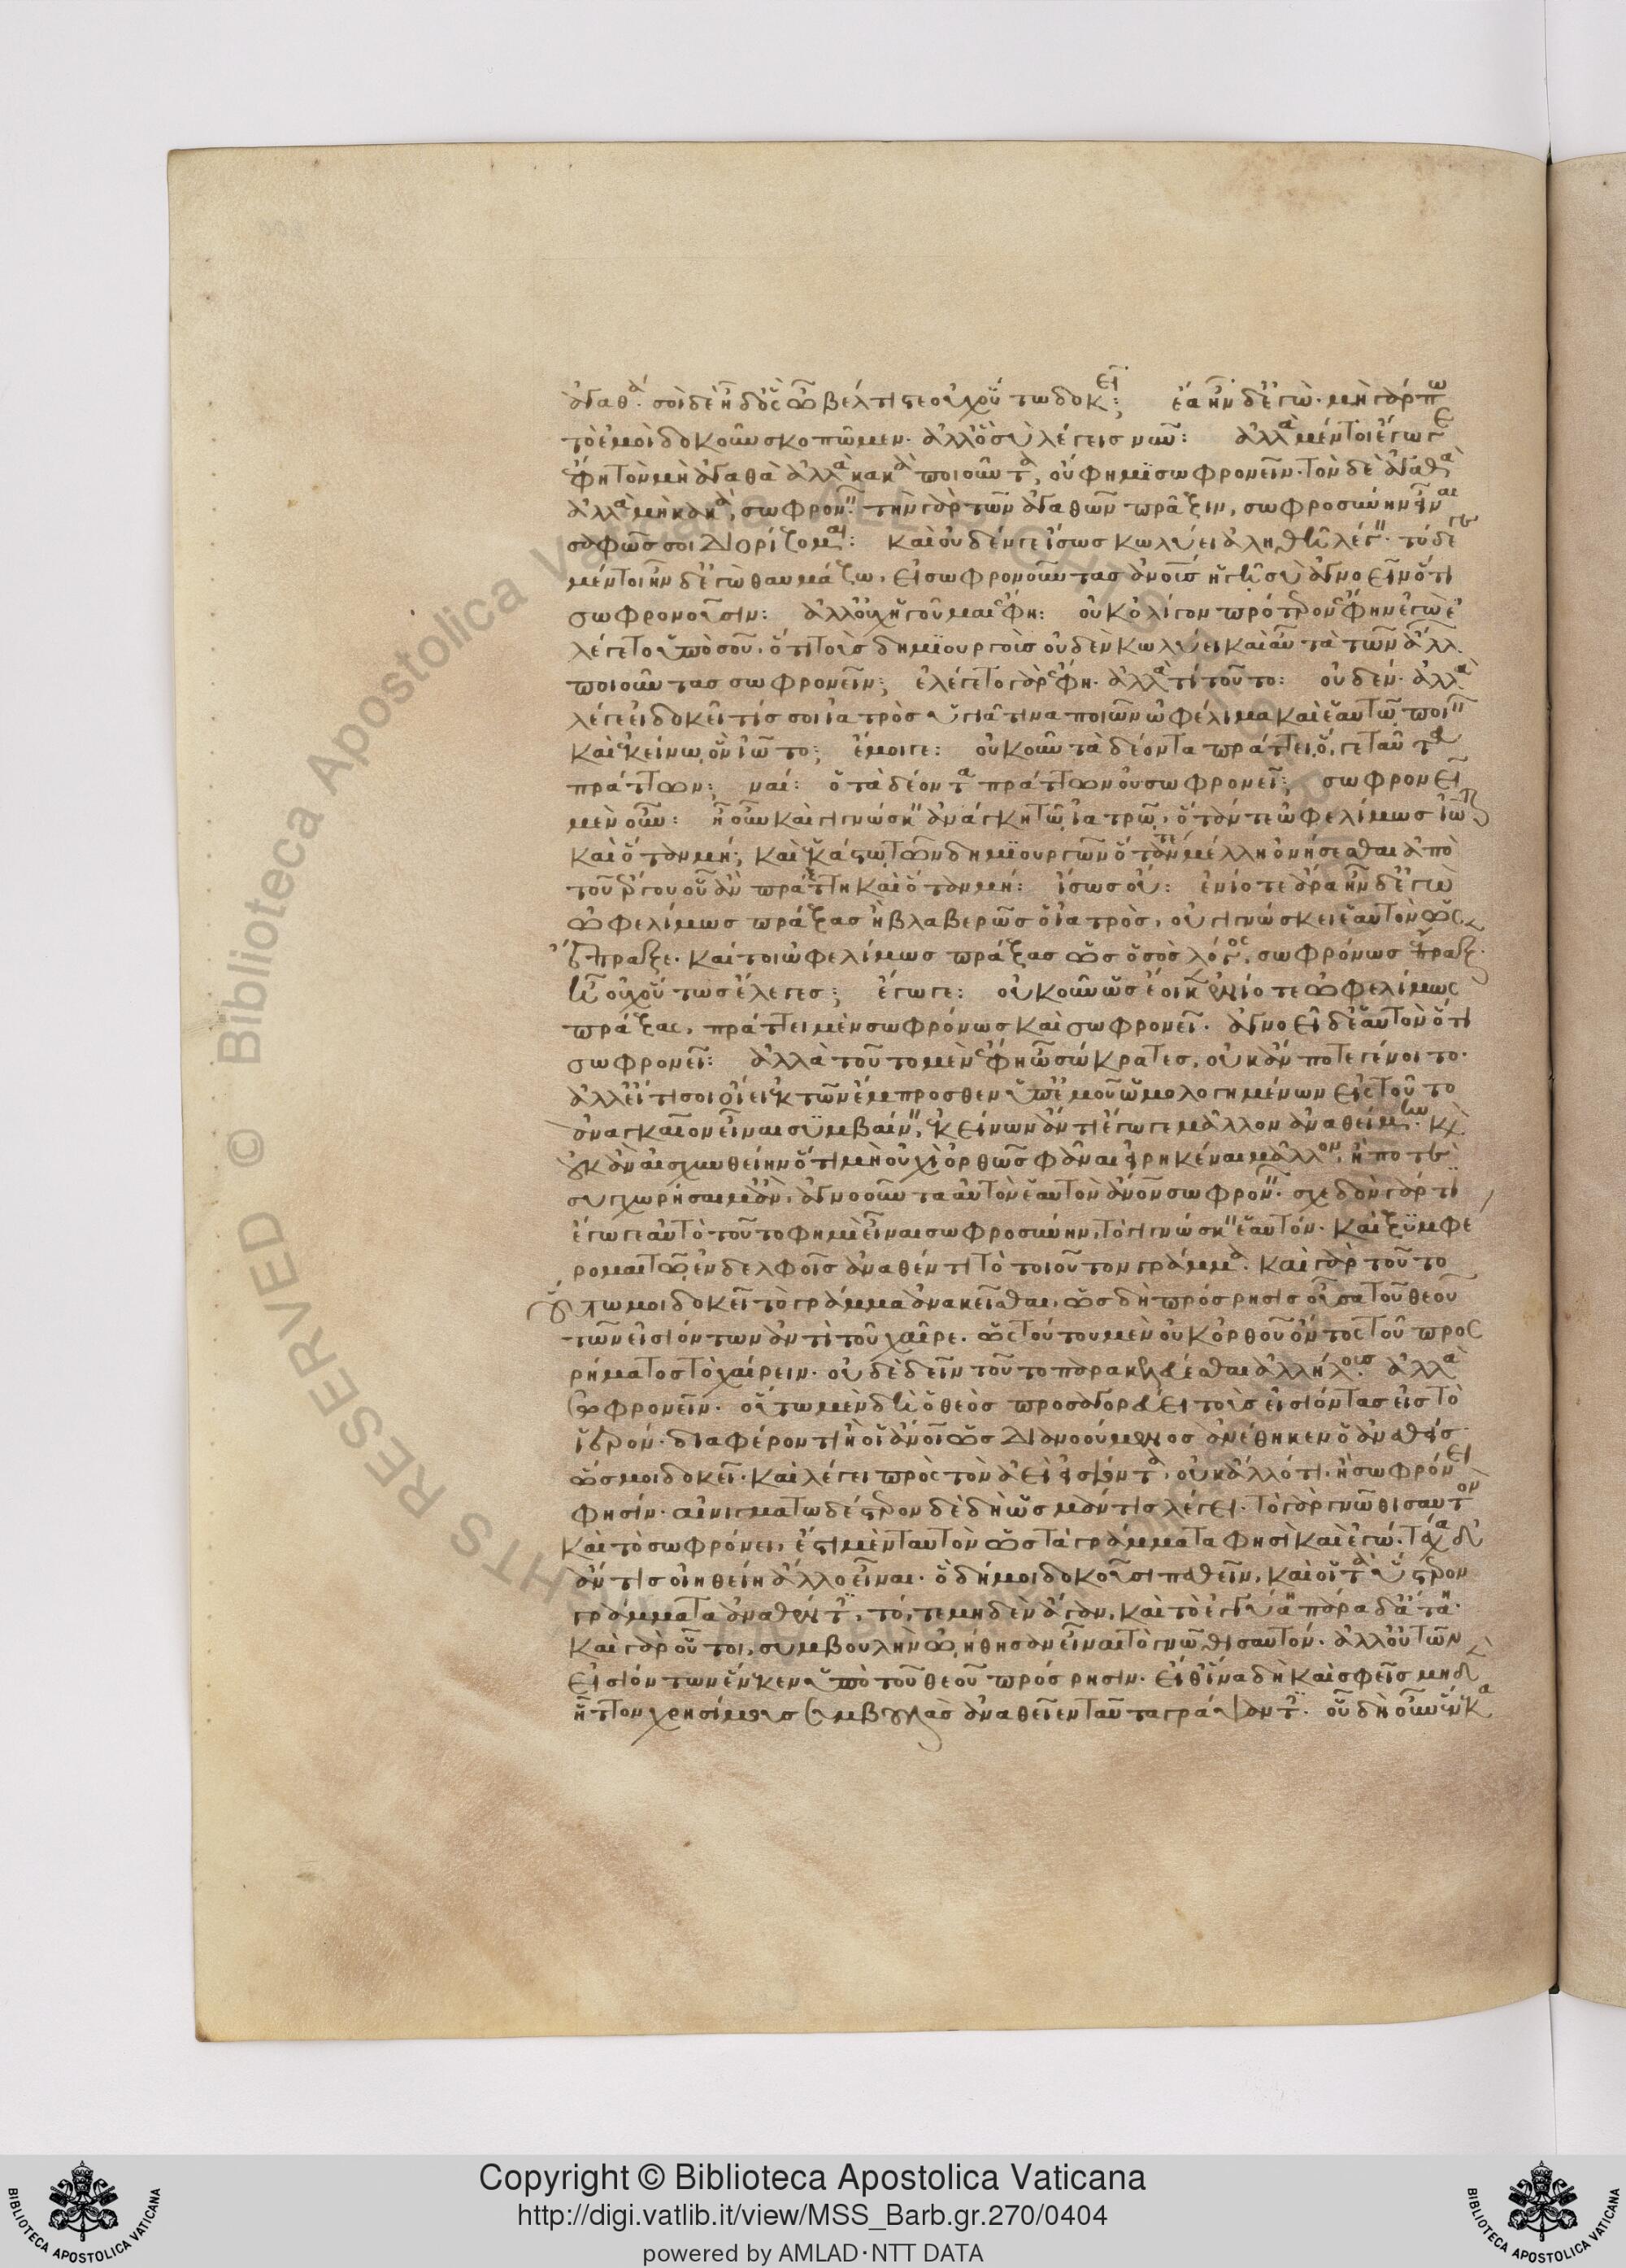 ἀγαθά. σοὶ δὲ ἦ δ' ὃς ὦ βέλτιστε οὐχ οὕτω δοκεῖ; ἔα ἦν δ' ἐγώ. μὴ γάρ πω
τὸ ἐμοὶ δοκοῦν σκοπῶμεν. ἀλλ' ὃ σὺ λέγεις νῦν: ἀλλὰ μέντοι ἔγωγε
ἔφη τὸν μὴ ἀγαθὰ ἀλλὰ κακὰ ποιοῦντα, οὔ φημι σωφρονεῖν. τὸν δὲ ἀγαθὰ
ἀλλὰ μὴ κακά, σωφρονεῖν. τὴν γὰρ τῶν ἀγαθῶν πρᾶξιν, σωφροσύνην εἶναι
σαφῶς σοι διορίζομαι: καὶ οὐδέν γέ ἴσως κωλύει ἀληθῆ λέγειν. τόδε γε
μέντοι ἦν δ' ἐγὼ θαυμάζω, εἰ σωφρονοῦντας ἀνοὺς ἡγῇ σὺ ἀγνοεῖν ὅτι
σωφρονοῦσιν: ἀλλ' οὐχ ἡγοῦμαι ἔφη: οὐκ ὀλίγον πρότερον ἔφην ἐγὼ ἐ
λέγετο ὑπὸ σοῦ, ὅτι τοὺς δημιουργοὺς οὐδὲν κωλύει καὶ αὖ τὰ τῶν ἄλλ
ποιοῦντας σωφρονεῖν; ἐλέγετο γὰρ ἔφη. ἀλλὰ τί τοῦτο: οὐδέν. ἀλλὰ
λέγε εἰ δοκεῖ τίς σοι ἰατρὸς ὑγιᾶ τινα ποιῶν ὠφέλιμα καὶ ἑαυτῷ ποιεῖν
καὶ ἐκείνῳ ὃν ἰῷτο; ἔμοιγε: οὐκοῦν τὰ δέοντα πράττει ὅ, γε ταῦτα
πράττων; ναί: ὁ τὰ δέοντα πράττων οὐ σωφρονεῖ; σωφρονεῖ
μὲν οὖν: ἦ οὖν καὶ γιγνώσκειν ἀνάγκη τῷ ἰατρῷ, ὅταν τε ὠφελίμως ἰᾶται
καὶ ὅταν μή; καὶ ἑκάστῳ τῶν δημιουργῶν ὅταν τε μέλλῃ ὀνήσεσθαι ἀπὸ
τοῦ ἔργου οὗ ἂν πράττῃ καὶ ὅταν μή: ἴσως οὔ: ἐνίοτε ἄρα ἦν δ' ἐγὼ
ὠφελίμως πράξας ἢ βλαβερῶς ὁ ἰατρὸς, οὐ γιγνώσκει ἑαυτὸν ὡς
ἔπραξε. καίτοι ὠφελίμως πράξας ὡς ὁ σὸς λόγος, σωφρόνως ἔπραξ.
ἢ οὐχ οὕτως ἔλεγες; ἔγωγε: οὐκοῦν ὡς ἔοικεν ἐνίοτε ὠφελίμως
πράξας, πράττει μὲν σωφρόνως καὶ σωφρονεῖ. ἀγνοεῖ δὲ ἑαυτὸν ὅτι
σωφρονεῖ: ἀλλὰ τοῦτο μὲν ἔφη ὦ σώκρατες, οὐκ ἄν ποτε γένοιτο.
ἀλλ' εἴ τι σοι οἴει ἐκ τῶν ἔμπροσθεν ὑπ' ἐμοῦ ὡμολογημένων εἰς τοῦτο
ἀναγκαῖον εἶναι συμβαίνειν, ἐκείνων ἄν τι ἔγωγε μᾶλλον ἀναθείμην. καὶ
οὐκ ἂν αἰσχυνθείην ὅτι μὴ οὐχὶ ὀρθῶς φάναι εἰρηκέναι μᾶλλον, ἤ ποτε
συγχωρήσαιμ' ἂν, ἀγνοοῦντα αὐτὸν ἑαυτὸν ἄνον σωφρονεῖν. σχεδὸν γάρ τι
ἔγωγε αὐτὸ τοῦτο φημὶ εἶναι σωφροσύνην, τὸ γιγνώσκειν ἑαυτόν. καὶ ξυμφέ
ρομαι τῷ ἐν δελφοῖς ἀναθέντι τὸ τοιοῦτον γράμμα. καὶ γὰρ τοῦτο
οὕτω μοι δοκεῖ τὸ γράμμα ἀνακεῖσθαι, ὡς δὴ πρόσρησις οὖσα τοῦ θεοῦ
τῶν εἰσιόντων ἀντὶ τοῦ χαῖρε. ὡς τούτου μὲν οὐκ ὀρθοῦ ὄντος τοῦ προσ
ρήματος τὸ χαίρειν. οὐδὲ δεῖν τοῦτο παρακελεύεσθαι ἀλλήλοις ἀλλὰ
σωφρονεῖν. οὕτω μὲν δὴ ὁ θεὸς προσαγορεύει τοὺς εἰσιόντας εἰς τὸ
ἱερόν. διαφέρον τι ἢ οἱ ἄνοι ὡς διανοούμενος ἀνέθηκεν ὁ ἀναθείς
ὥς μοι δοκεῖ. καὶ λέγει πρὸς τὸν ἀεὶ εἰσιόντα, οὐκ ἄλλό τι. ἢ σωφρόνει
φησίν. αἰνιγματωδέστερον δὲ δὴ ὡς μάντις λέγει. τὸ γὰρ γνῶθι σαυτὸν
καὶ τὸ σωφρόνει, ἔστι μὲν ταυτὸν ὡς τὰ γράμματα φησὶ καὶ ἐγώ. τάχα δ'
ἄν τις οἰηθείη ἄλλο εἶναι. ὃ δή μοι δοκοῦσι παθεῖν, καὶ οἱ τὰ ὕστερον
γράμματα ἀναθέντες, τό, τε μηδὲν ἄγαν, καὶ τὸ ἐγγύη πάρα δ' ἄτη.
καὶ γὰρ οὗτοι, συμβουλὴν ᾠήθησαν εἶναι τὸ γνῶθι σαυτόν. ἀλλ' οὐ τῶν
εἰσιόντων ἕνεκεν ὑπὸ τοῦ θεοῦ πρόσρησιν. εἶθ' ἵνα δὴ καὶ σφεῖς μηδὲν
ἧττον χρησίμους συμβουλὰς ἀναθεῖεν ταῦτα γράψαντες. οὗ δὴ οὖν ἕνεκα
Copyright © Biblioteca Apostolica Vaticana
http://digi.vatlib.it/view/MSS_Barb.gr.270/0404
powered by AMLAD·NTT DATA